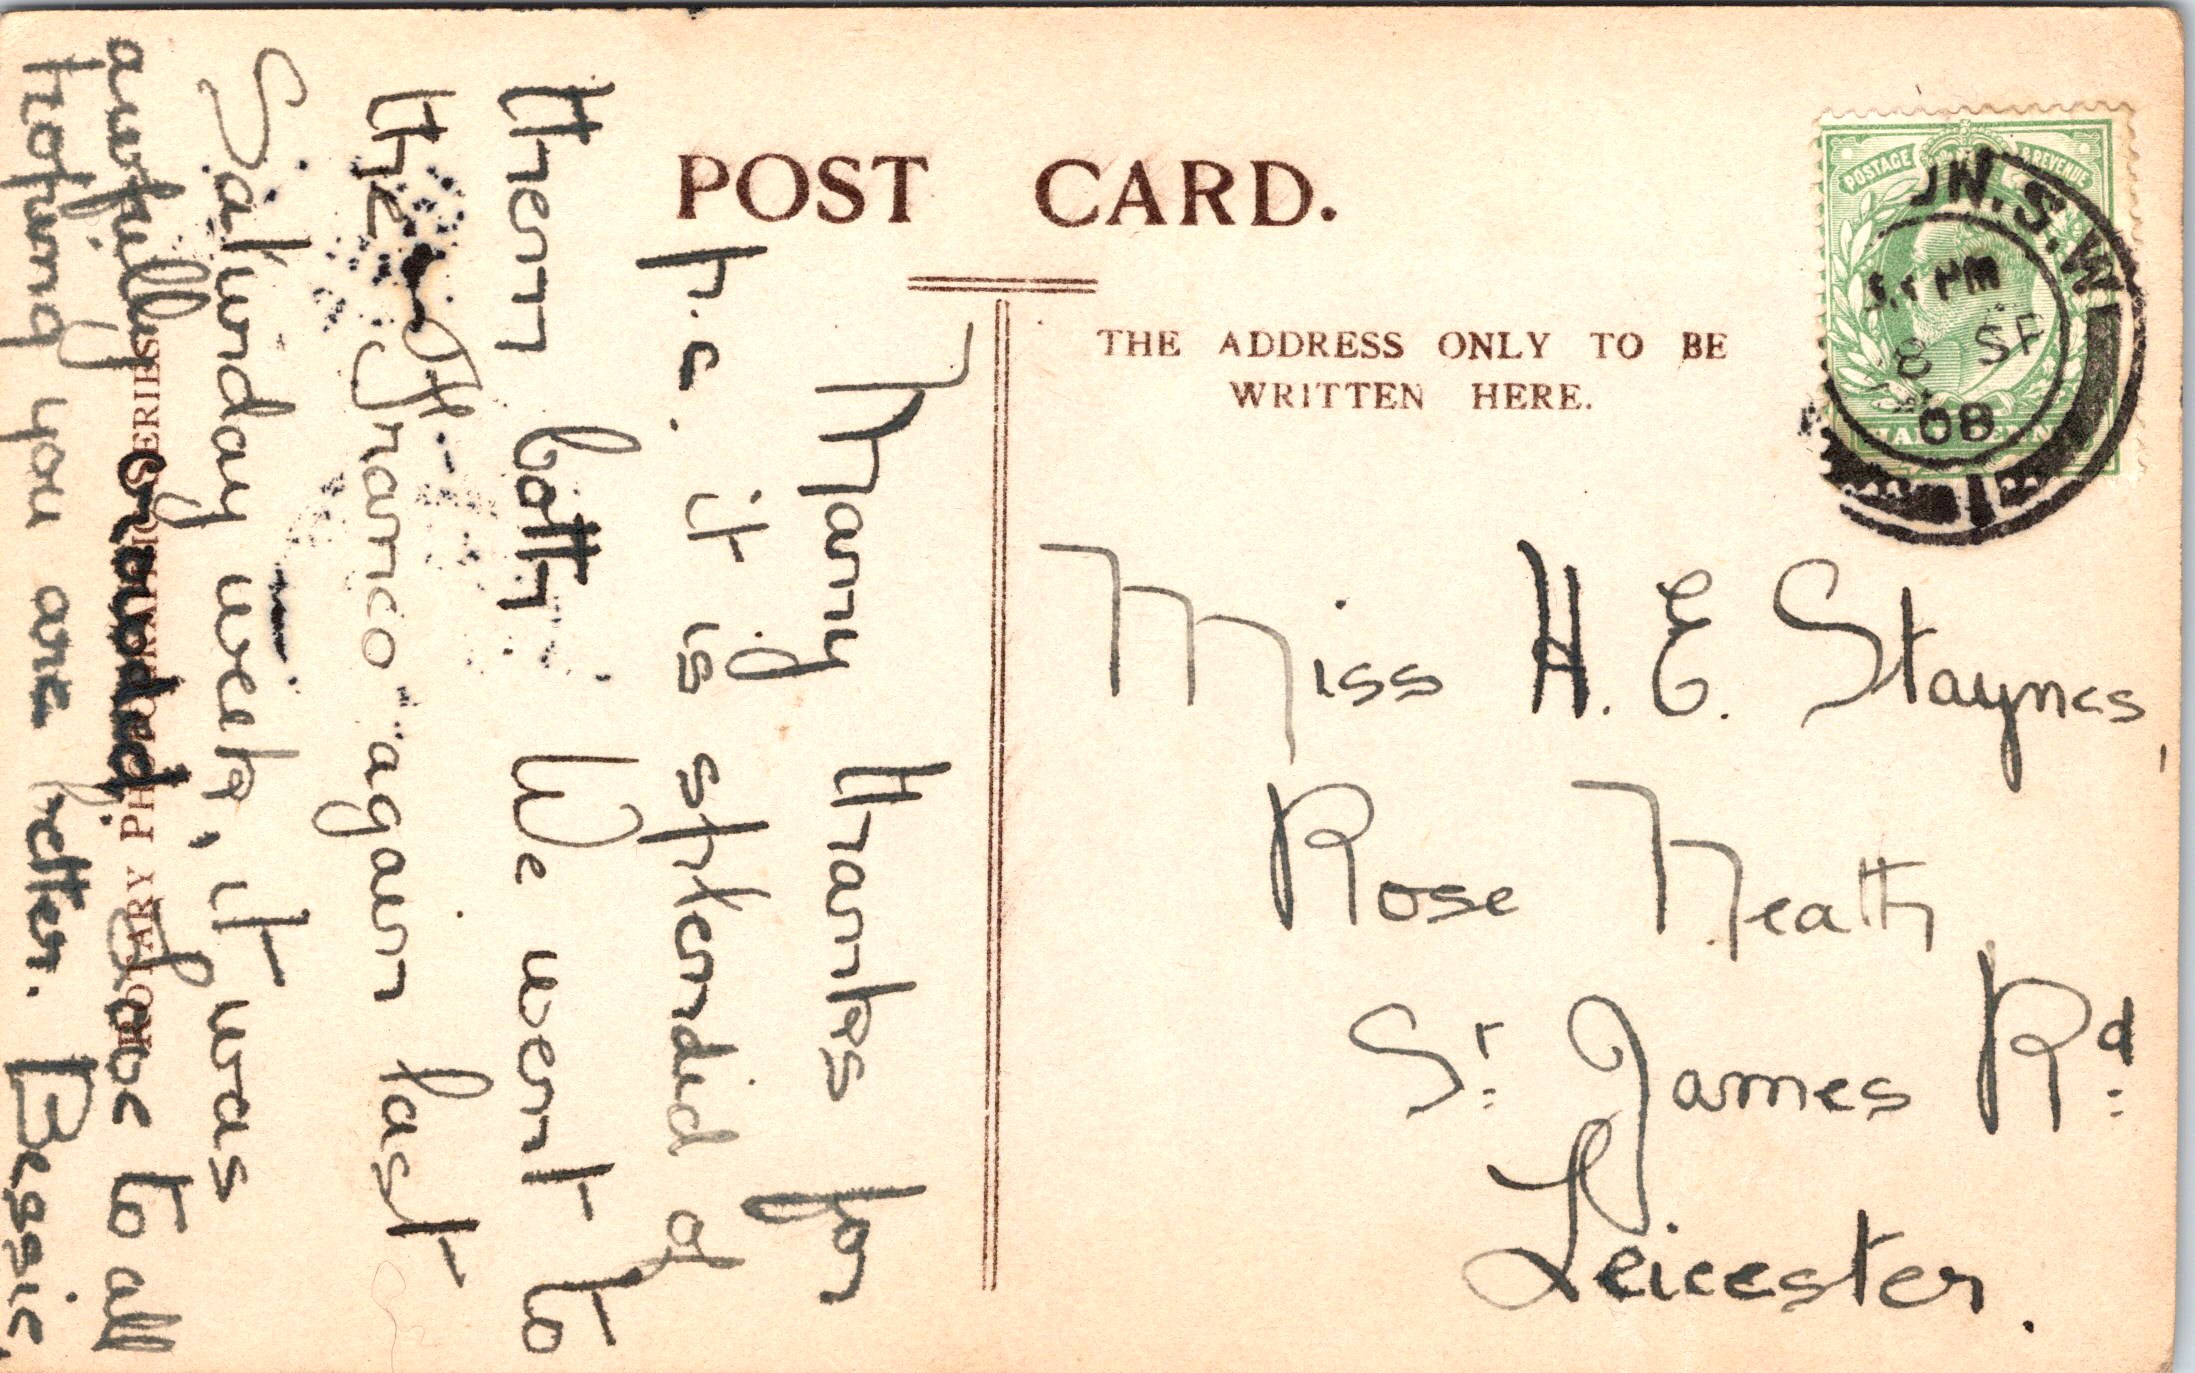 POST CARD.
THE ADDRESS ONLY TO BE
WRITTEN HERE.
POSTAGE & REVENUE
N.S.W
PM
8 SE
08
Miss H. E. Staynes,
Rose Neath
St James Rd
Leicester.
Many thanks for
p.c. it is splendid of
them both. We went to
the Franco again last
Saturday week, it was
awfully crowded. Love to all
hoping you are better. Bessie.
ROTARY PHOTOGRAPHIC SERIES